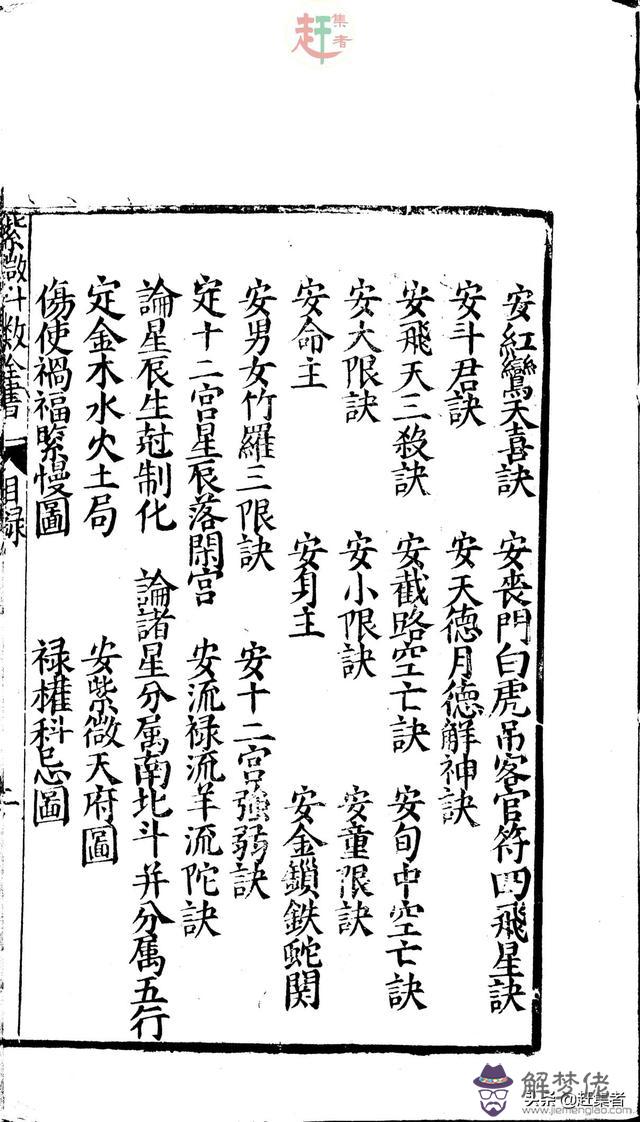 赶集者
安紅鸞天喜訣 安喪門白虎吊客官符四飛星訣
安斗君訣 安天德月德解神訣
安飛天三殺訣 安截路空亡訣 安旬中空亡訣
安大限訣 安小限訣 安童限訣
安命主 安身主 安金鎖鉄蛇関
安男女竹羅三限訣 安十二宮強弱訣
定十二宮星辰落閑宮 安流禄流羊流陀訣
論星辰生尅制化 論諸星分属南北斗并分属五行
定金木水火土局 安紫微天府圖
傷使禍福緊慢圖 禄權科忌圖
紫微斗数全書 目録 一
解梦佬
头条@赶集者
www.jiemenglao.com